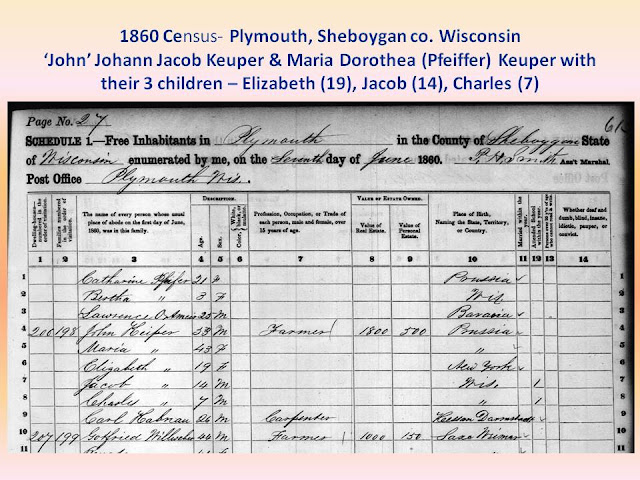 1860 Census- Plymouth, Sheboygan co. Wisconsin
‘John’ Johann Jacob Keuper & Maria Dorothea (Pfeiffer) Keuper with
their 3 children – Elizabeth (19), Jacob (14), Charles (7)
Page No. 27
SCHEDULE 1.—Free Inhabitants in Plymouth in the County of Sheboygan State
of Wisconsin enumerated by me, on the Seventh day of June 1860. P. H. Smith Ass't Marshal.
Post Office Plymouth Wis.
Dwelling-houses—numbered in the order of visitation.
Families numbered in the order of visitation.
The name of every person whose usual place of abode on the first day of June, 1860, was in this family.
DESCRIPTION.
Age.
Sex.
Color, White, black, or mulatto.
Profession, Occupation, or Trade of each person, male and female, over 15 years of age.
VALUE OF ESTATE OWNED.
Value of Real Estate.
Value of Personal Estate.
Place of Birth, Naming the State, Territory, or Country.
Married within the year.
Attended School within the year.
Whether deaf and dumb, blind, insane, idiotic, pauper, or convict.
1 2 3 4 5 6 7 8 9 10 11 12 13 14
1 Catharine 21 F Prussia
2 Bertha " 3 F Wis
3 Lawrence 25 M Bavaria
4 200 198 John Keiper 53 M Farmer 1800 500 Prussia
5 Maria " 43 F "
6 Elizabeth " 19 F New York
7 Jacob " 14 M Wis 1
8 Charles " 7 M " 1
9 Carl 26 M Carpenter Hessen Darmstadt
10 207 199 Gotfried 44 M Farmer 1000 150 Saxe Weimar